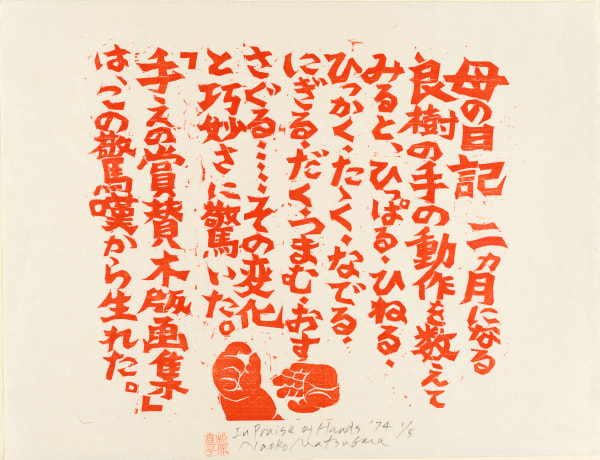 母の日記 二ヵ月になる
良樹の手の動作を数えて
みると、ひっぱる・ひねる・
ひっかく・たゝく・なでる・
にぎる・だく・つまむ・おす
さぐる・・・・・その変化
と巧妙さに驚いた。
「手えの賞賛木版画集」
は、この驚嘆から生れた。
In Praise of Hands '74 1/5
Naoko Matsubara
松原直子